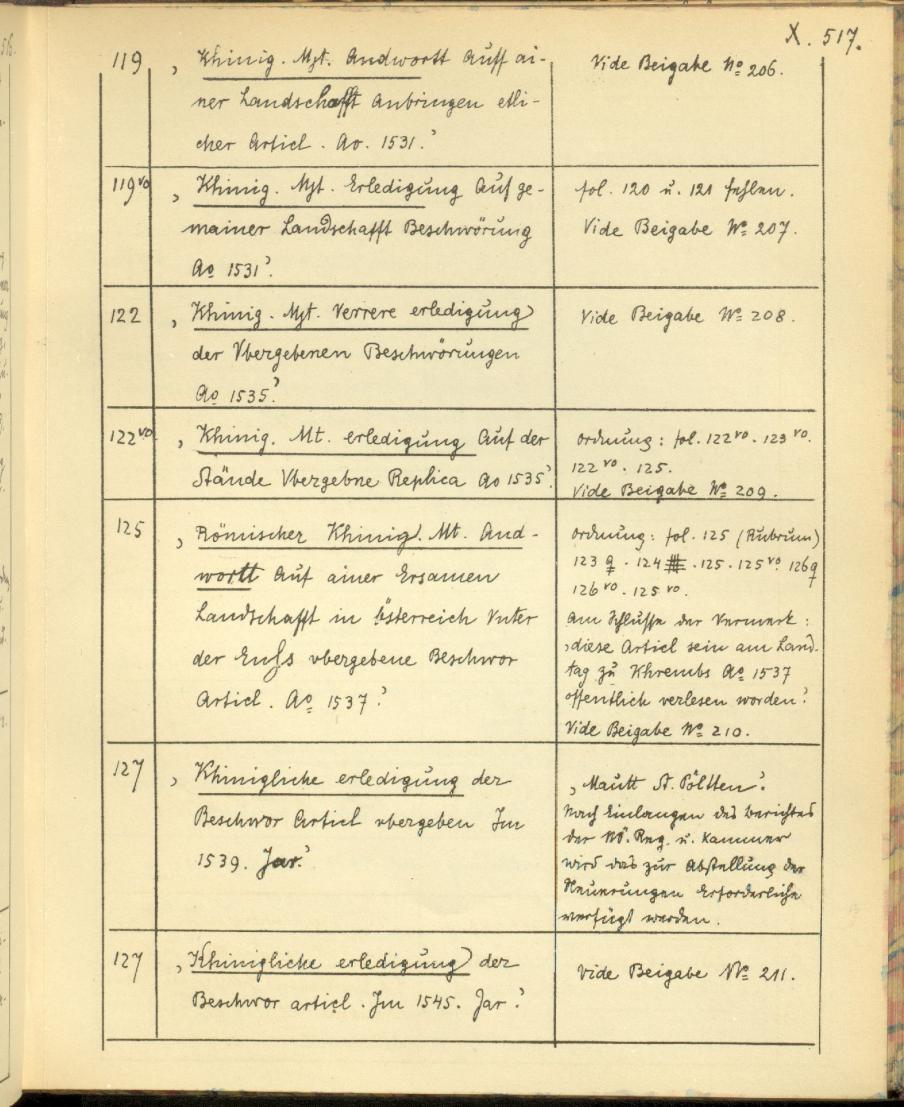 X. 517.
119 , Khinig. Mjt. Andwortt Auff ai-
ner Landschafft Anbringen etli-
cher Articl. Ao. 1531.'
Vide Beigabe No 206.
119vo , Khinig. Mjt. Erledigung Auf ge-
mainer Landschafft Beschwörung
Ao 1531'.
fol. 120 u. 121 fehlen.
Vide Beigabe No 207.
122 , Khinig. Mjt. Verrere erledigung
der Vbergebenen Beschwörungen
Ao 1535.'
Vide Beigabe No 208.
122vo. , Khinig. Mt. erledigung Auf der
Stände Vbergebne Replica Ao 1535.'
Ordnung: fol. 122vo. 123vo.
122vo. 125.
Vide Beigabe No 209.
125 , Römischer Khinig. Mt. And-
wortt Auf ainer Ersamen
Landschafft in Österreich Vnter
der Enß vbergebene Beschwor
Articl. Ao 1537.'
Ordnung: fol. 125 (Rubrum)
123 . 124 . 125. 125vo. 126
126vo. 125vo.
Am Schlusse der Vermerk:
,diese Articl sein am Land-
tag zu Khrembs Ao 1537
offentlich verlesen worden.'
Vide Beigabe No 210.
127 , Khinigliche erledigung der
Beschwor Articl vbergeben Im
1539. Jar.'
, Mautt St. Pöltten'.
Nach Einlangen des Berichtes
der NÖ. Reg. u. Kammer
wird das zur Abstellung der
Neuerungen Erforderliche
verfügt werden.
127 , Khinigliche erledigung der
Beschwor articl. Im 1545. Jar.'
Vide Beigabe No 211.